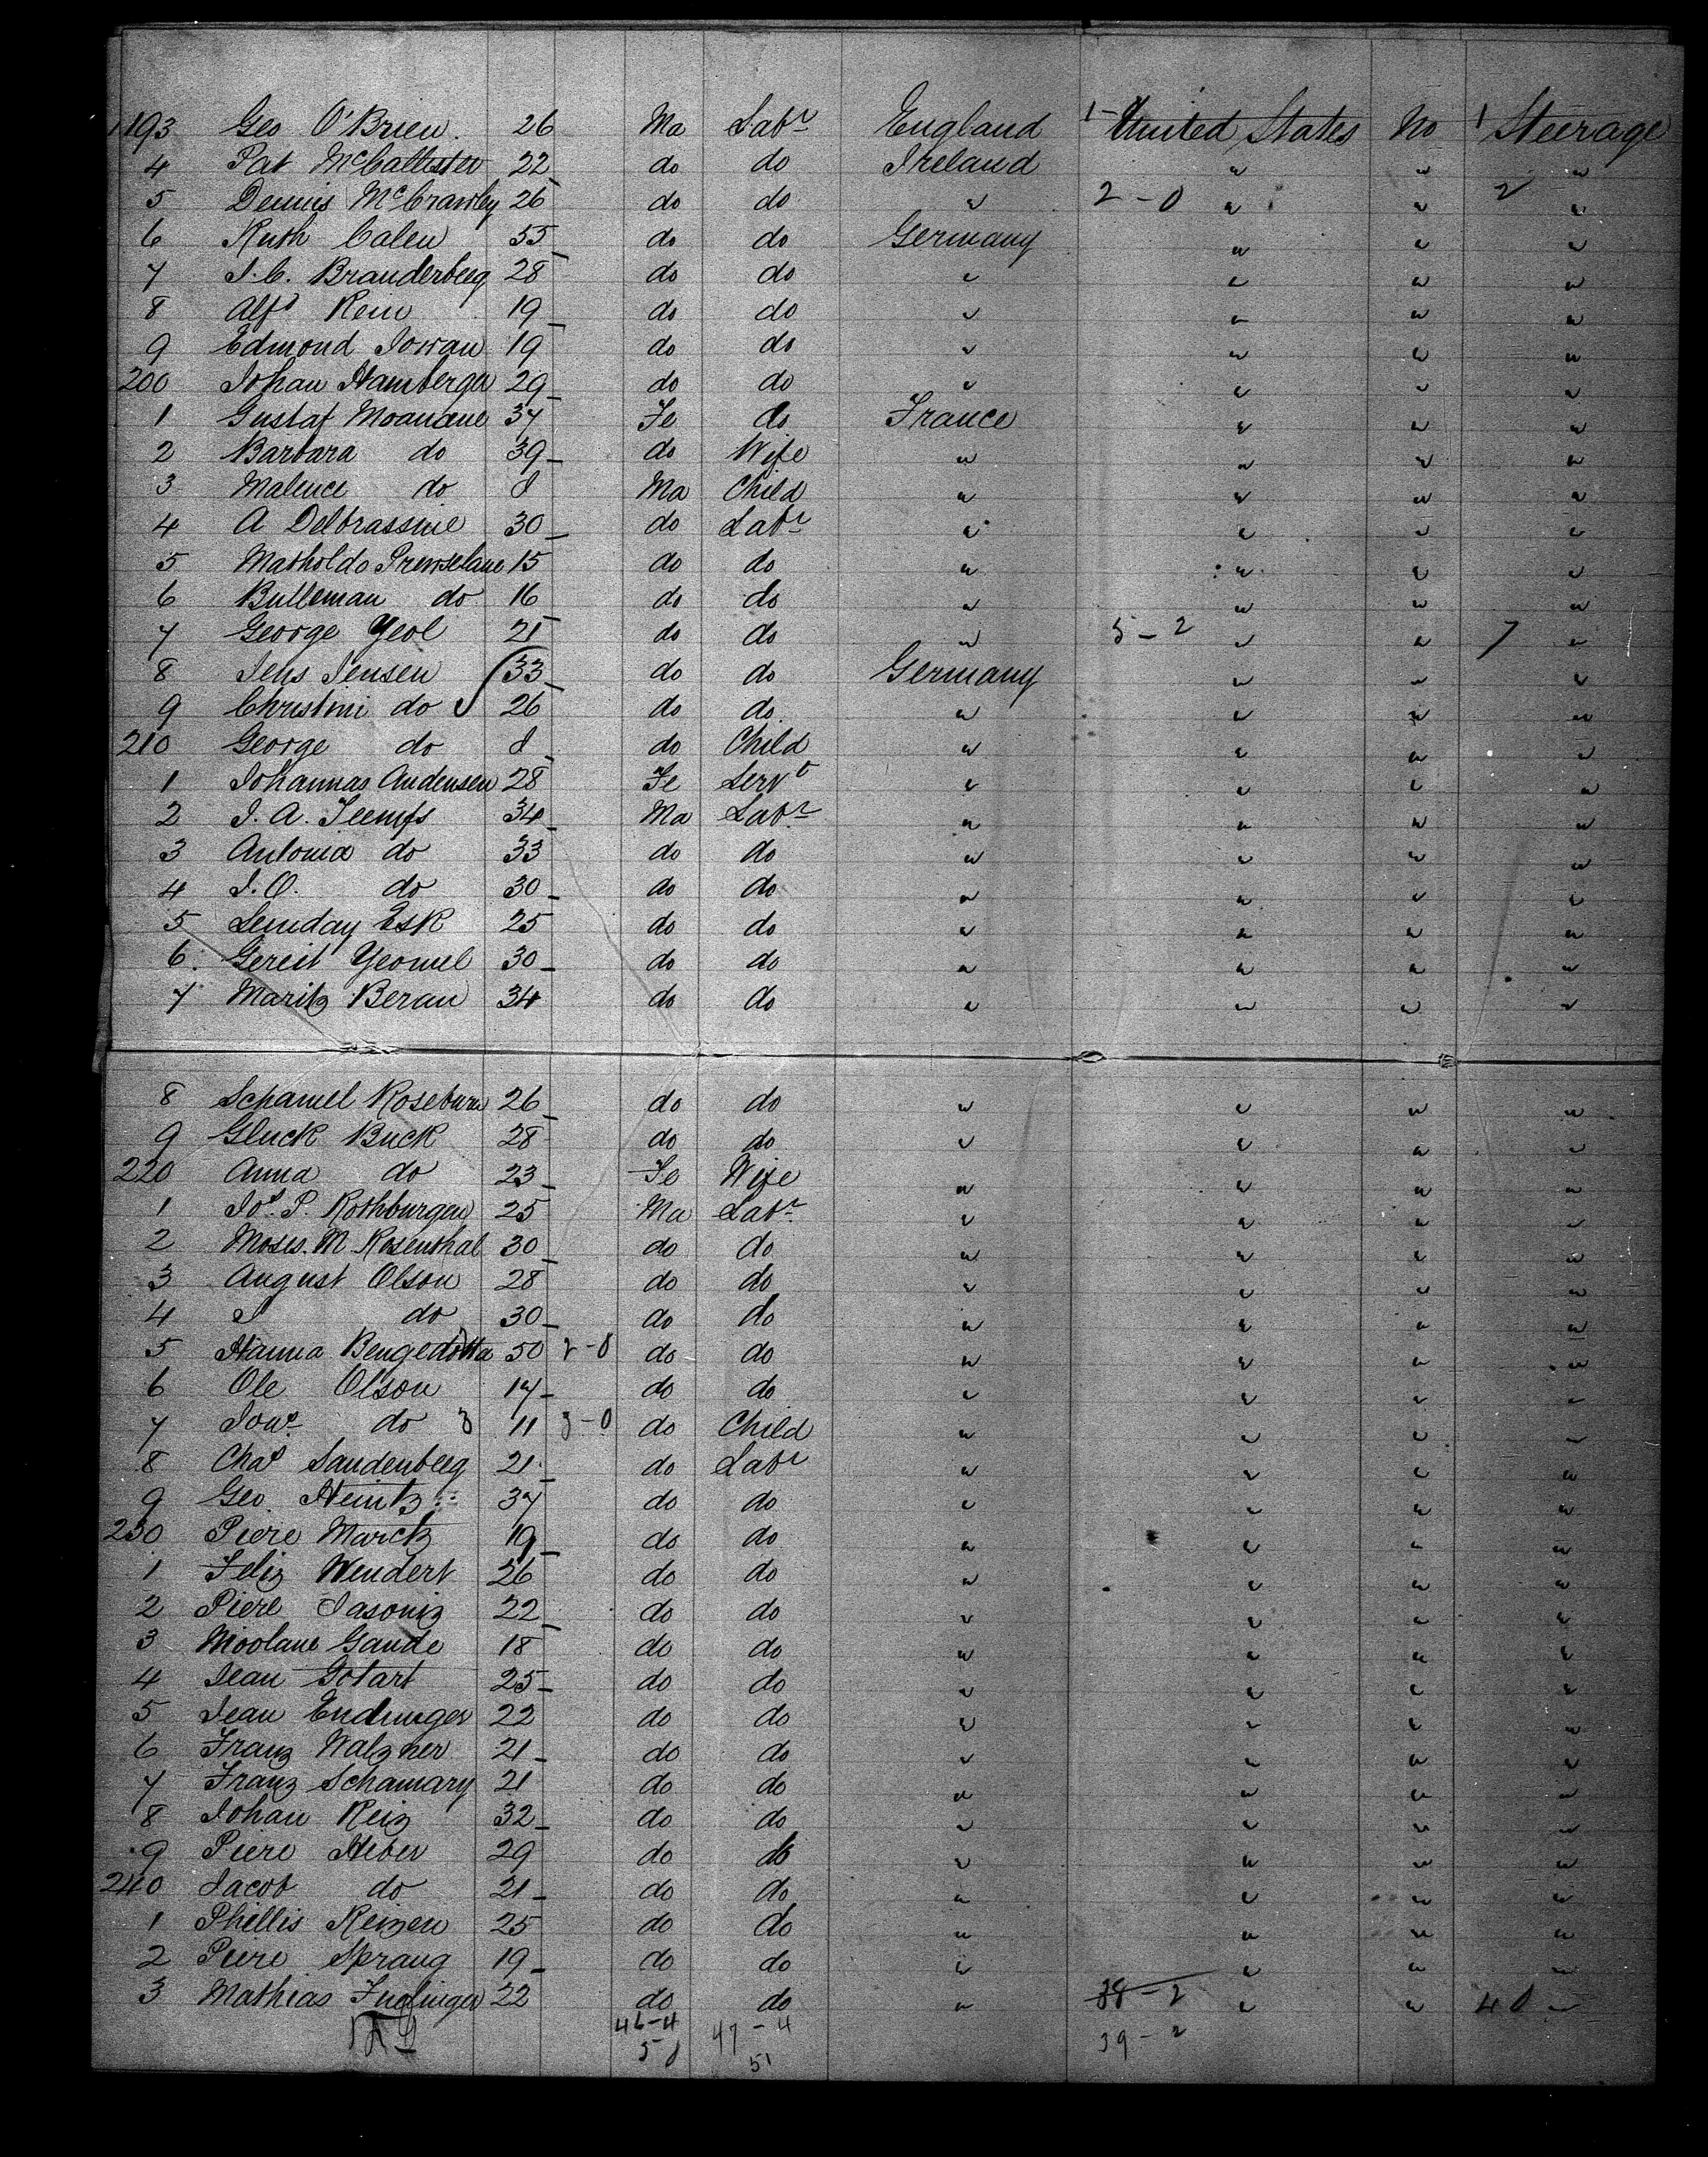 193 Geo O'Brien 26 Ma Labr England 1 United States No 1 Steerage
4 Pat McCallister 22 do do Ireland " " "
5 Dennis McCrawley 26 do do " 2-0 " " 2 "
6 Ruth Calen 55 do do Germany " " "
7 J.C. Branderbeeg 28 do do " " " "
8 Alfd Rein 19 do do " " " "
9 Edmond 19 do do " " " "
200 Johan Hamberger 29 do do " " " "
1 Gustaf Moanane 37 Fe do France " " "
2 Barbara do 39 do Wife " " " "
3 Malence do 8 Ma Child " " " "
4 A Delbrassine 30 do Labr " " " "
5 Matholdo 15 do do " " " "
6 Bulleman do 16 do do " " " "
7 George Yeol 21 do do " 5-2 " " 7 "
8 Jens Jensen 33 do do Germany " " "
9 Christini do 26 do do " " " "
210 George do 8 do Child " " " "
1 Johannas Andensen 28 Fe Servt " " " "
2 J.A. 34 Ma Labr " " " "
3 Antonia do 33 do do " " " "
4 J.O. do 30 do do " " " "
5 Lemday Esk 25 do do " " " "
6 Gereit Yeomel 30 do do " " " "
7 Maritz Beran 34 do do " " " "
8 Schamel Roseburn 26 do do " " " "
9 Gluck Buck 28 do do " " " "
220 Anna do 23 Fe Wife " " " "
1 Jos. P. Rothburgen 25 Ma Labr " " " "
2 Moses. M Rosenthal 30 do do " " " "
3 August Olson 28 do do " " " "
4 S do 30 do do " " " "
5 Hanna 50 2-0 do do " " " "
6 Ole Olson 17 do do " " " "
7 Jons do 3 11 3-0 do Child " " " "
8 Chas Sandenbeeg 21 do Labr " " " "
9 Geo. Heintz 37 do do " " " "
230 Piere Marck 19 do do " " " "
1 Feliz Wendert 26 do do " " " "
2 Piere Jasoniz 22 do do " " " "
3 Moolane Gande 18 do do " " " "
4 Jean Gotart 25 do do " " " "
5 Jean Endinger 22 do do " " " "
6 Franz Walzner 21 do do " " " "
7 Franz Schamary 21 do do " " " "
8 Johan Reiz 32 do do " " " "
9 Piere Heber 29 do do " " " "
240 Jacob do 21 do do " " " "
1 Phillis Reizen 25 do do " " " "
2 Piere Sprang 19 do do " " " "
3 Mathias 22 do do " 38-2 " " 40 "
46-4 47-4 39-2
50 51